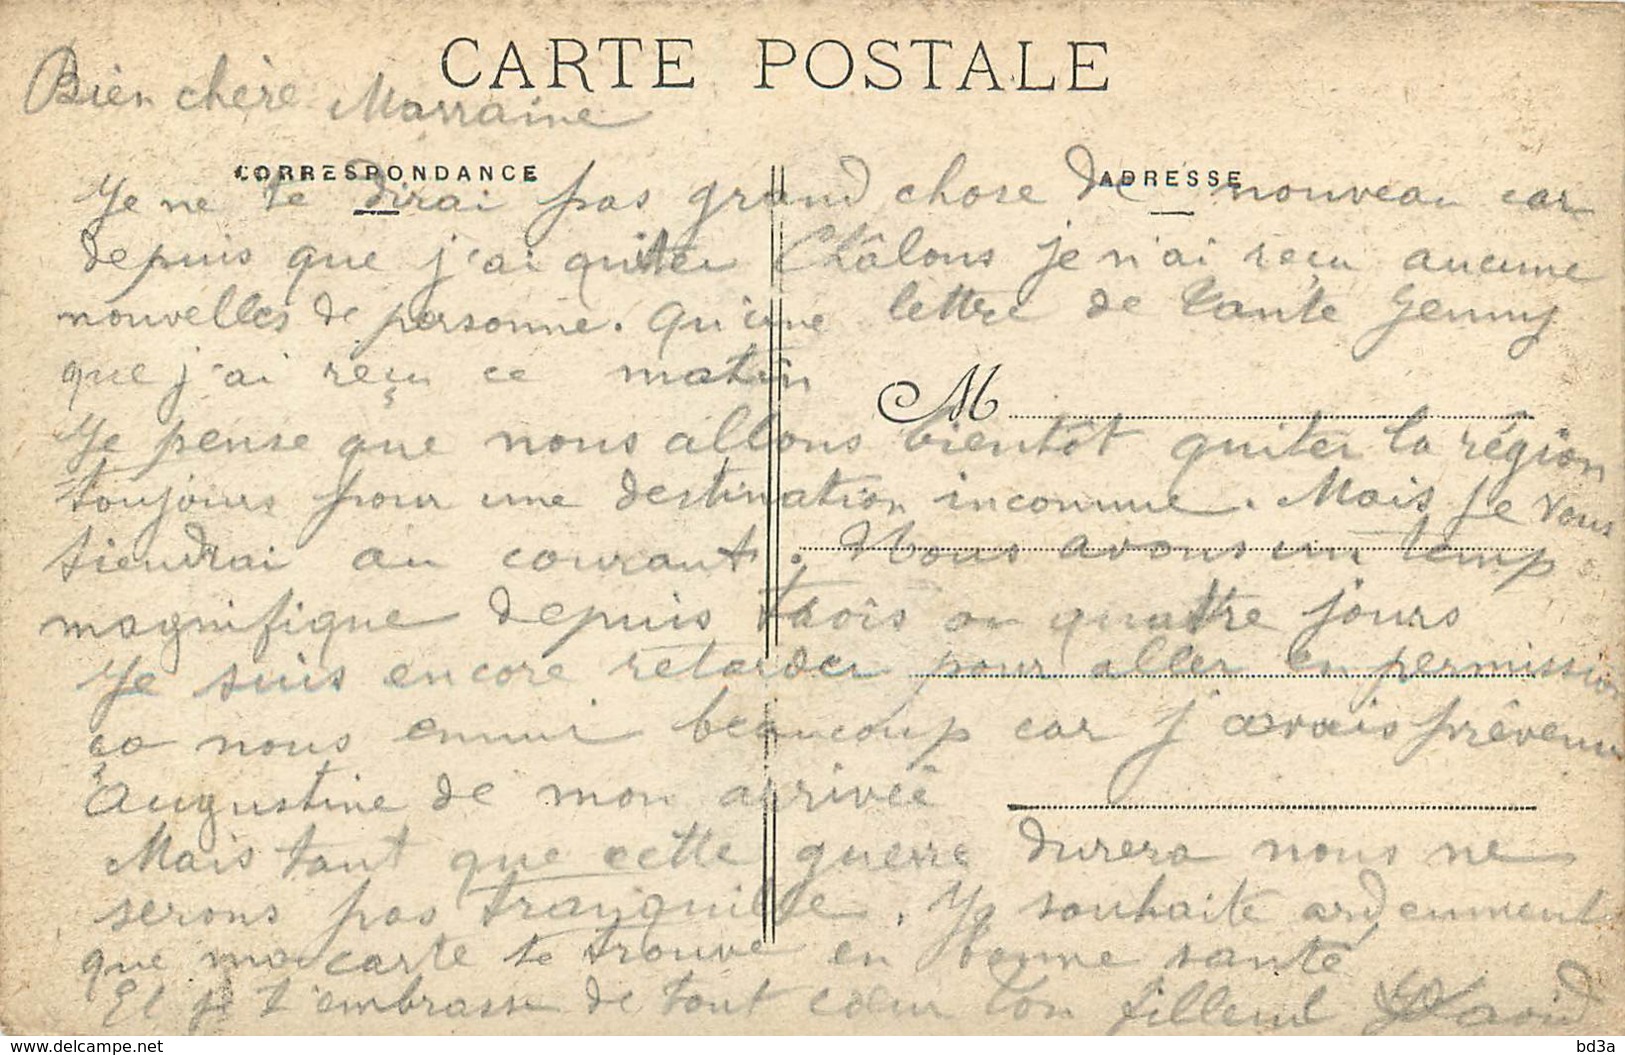 CARTE POSTALE
Bien chère Marraine
CORRESPONDANCE
ADRESSE
Je ne te dirai pas grand chose de nouveau car
depuis que j'ai quiter Châlons je n'ai reçu aucune
nouvelles de personne. Qu'une lettre de tante Jenny
que j'ai reçu ce matin
M
Je pense que nous allons bientôt quiter la région
toujours pour une destination inconnue. Mais je vous
tiendrai au courant. Nous avons un temp
magnifique depuis trois ou quatre jours
Je suis encore retarder pour aller en permission
ça nous ennui beaucoup car j'avais prêvenu
Augustine de mon arrivée
Mais tant que cette guerre durera nous ne
serons pas tranquille. Je souhaite ardemment
que ma carte te trouve en bonne santé
Et je t'embrasse de tout cœur ton filleul
www.delcampe.net
bd3a